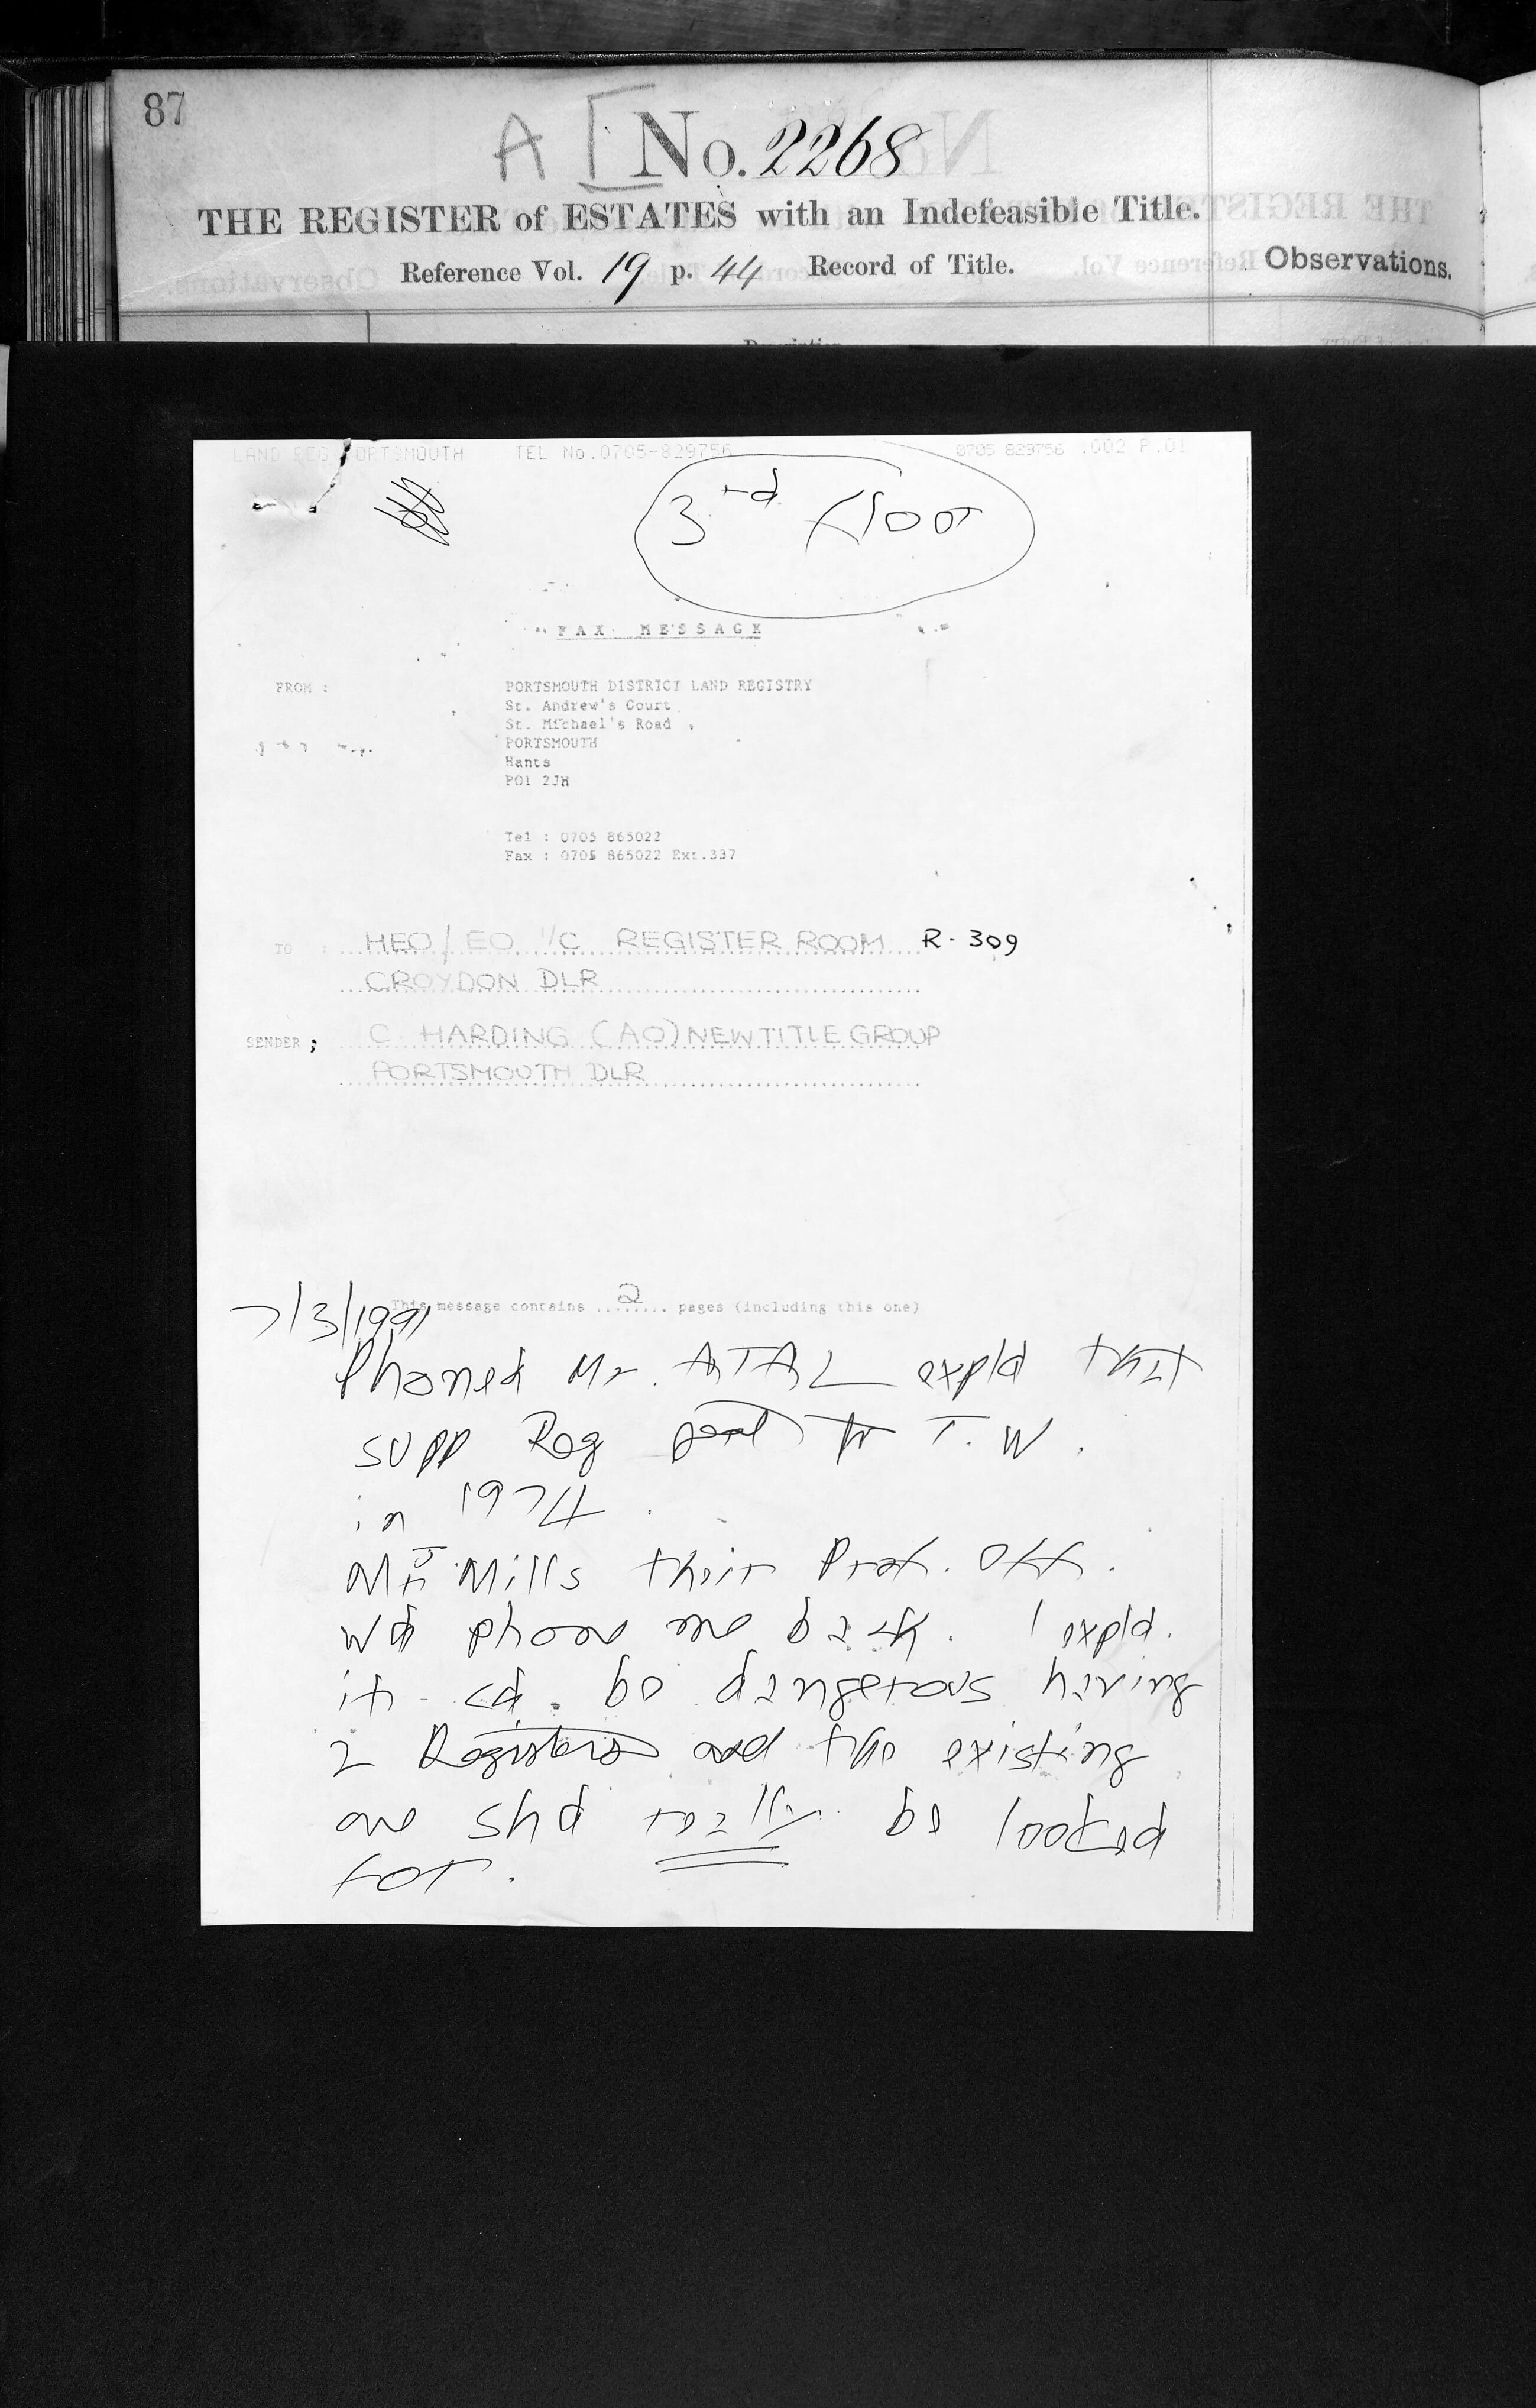 87
A No. 2268
THE REGISTER of ESTATES with an Indefeasible Title.
Reference Vol. 19 p. 44 Record of Title.
Observations.
Description
LAND REG PORTSMOUTH TEL No.0705-829756 0705 829756 .002 P.01
3rd floor
FAX MESSAGE
FROM : PORTSMOUTH DISTRICT LAND REGISTRY
St. Andrew's Court
St. Michael's Road
PORTSMOUTH
Hants
PO1 2JH
Tel : 0705 865022
Fax : 0705 865022 Ext.337
TO : HEO/EO I/C REGISTER ROOM R-309
CROYDON DLR
SENDER ; C HARDING (AO) NEW TITLE GROUP
PORTSMOUTH DLR
This message contains ..2.. pages (including this one)
7/3/1991
Phoned Mr. ATAL expld that
supp Reg to T.W.
in 1974.
Mr J. Mills their Prof. Off.
wd phone me back. I expld.
it cd. be dangerous having
2 Registers and the existing
one shd really be looked
for.